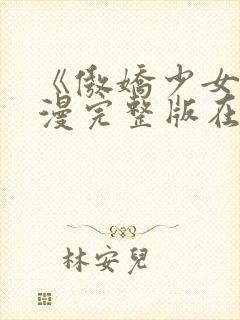 《傲嬌少女
漫完整版在
林安兒